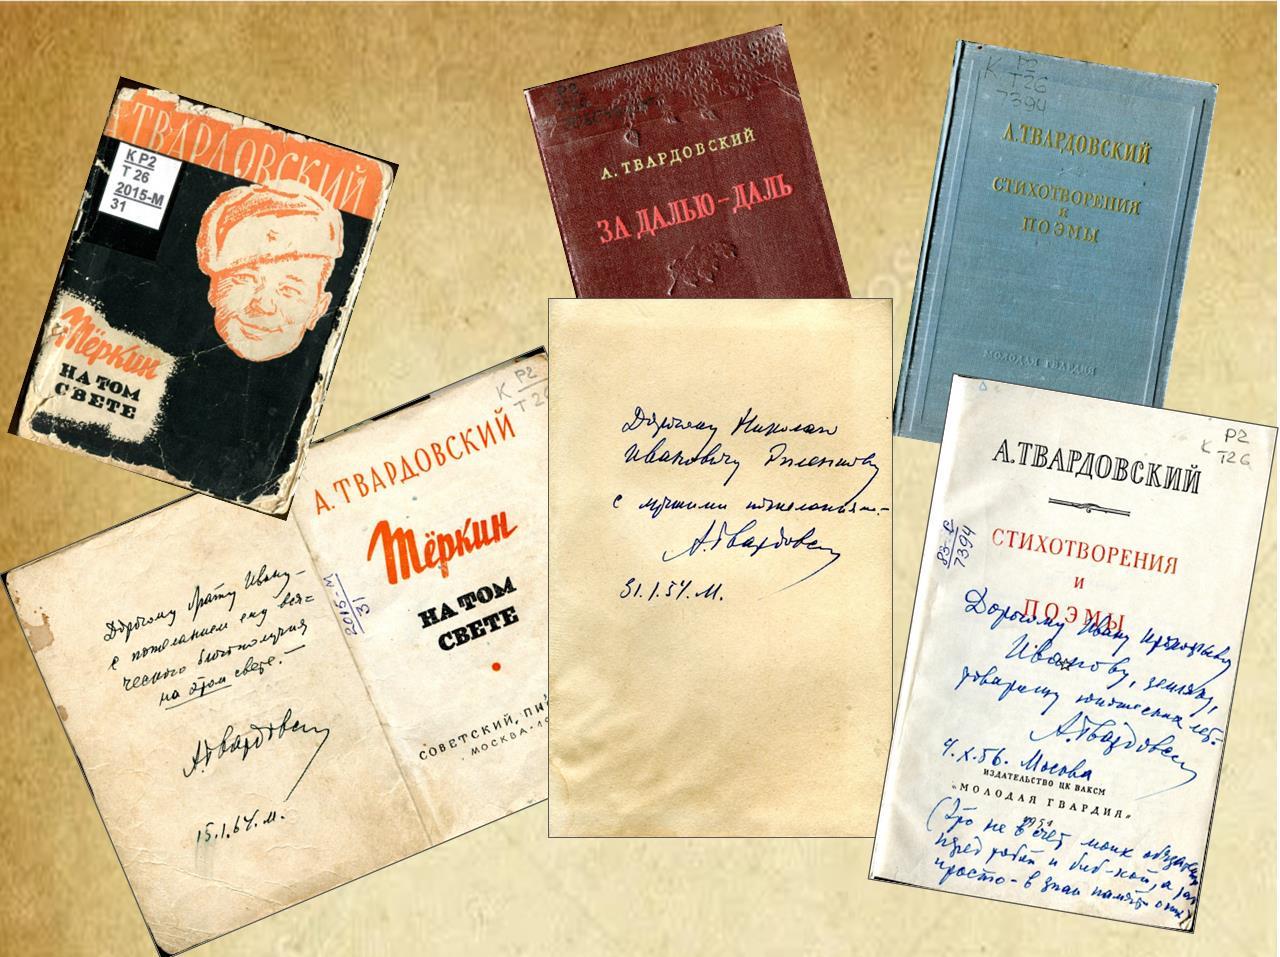 ТВАРДОВСКИЙ
К Р2
Т 26
2015-М
31
Тёркин
НА ТОМ
СВЕТЕ
Р2
А. ТВАРДОВСКИЙ
ЗА ДАЛЬЮ – ДАЛЬ
К Р2
Т26
7394
А. ТВАРДОВСКИЙ
СТИХОТВОРЕНИЯ
И
ПОЭМЫ
МОЛОДАЯ ГВАРДИЯ
Дорогому брату Ивану –
с пожеланием ему вся=
ческого благополучия
на этом свете. –
А Твардовский
15.1.64. М.
К Р2
Т 26
А. ТВАРДОВСКИЙ
Тёркин
НА ТОМ
СВЕТЕ
2015-М
31
СОВЕТСКИЙ ПИ
МОСКВА - 19
Дорогому Николаю
Ивановичу Рыленкову
с лучшими пожеланьями. –
А. Твардовский
Р2
К Т26
А. ТВАРДОВСКИЙ
83-Б
7394
СТИХОТВОРЕНИЯ
И
ПОЭМЫ
Дорогому Ивану
Иванову, земляку,
товарищу юношеских лет. –
А. Твардовский
Москва
ИЗДАТЕЛЬСТВО ЦК ВЛКСМ
„МОЛОДАЯ ГВАРДИЯ"
1951
(Это не в счет моих
перед тобой и биб-кой, а
просто – в знак памяти